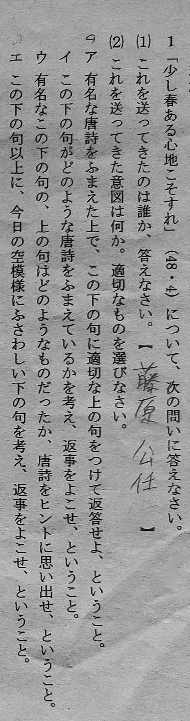 1 「少し春ある心地こそすれ」(48・4)について、次の問いに答えなさい。
(1) これを送ってきたのは誰か、答えなさい。【 藤原公任 】
(2) これを送ってきた意図は何か。適切なものを選びなさい。
ア 有名な唐詩をふまえた上で、この下の句に適切な上の句をつけて返答せよ、ということ。
イ この下の句がどのような唐詩をふまえているかを考え、返事をよこせ、ということ。
ウ 有名なこの下の句の、上の句はどのようなものだったか、唐詩をヒントに思い出せ、ということ。
エ この下の句以上に、今日の空模様にふさわしい下の句を考え、返事をよこせ、ということ。